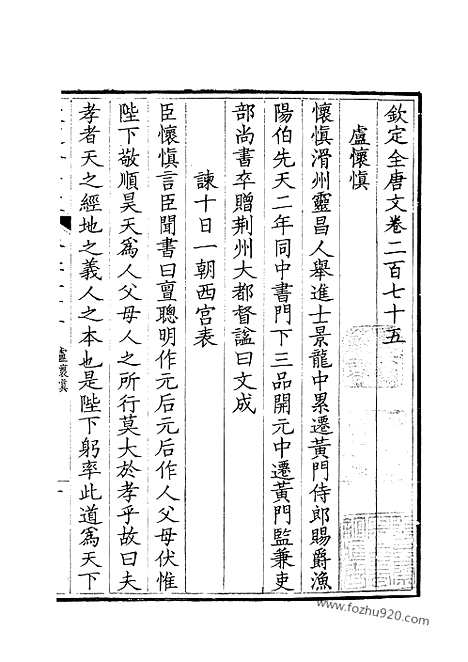 欽定全唐文卷二百七十五
盧懷慎
懷慎滑州靈昌人舉進士景龍中累遷黃門侍郎賜爵漁
陽伯先天二年同中書門下三品開元中遷黃門監兼吏
部尚書卒贈荆州大都督諡曰文成
諫十日一朝西宮表
臣懷慎言臣聞書曰亶聰明作元后元后作人父母伏惟
陛下敬順昊天為人父母人之所行莫大於孝乎故曰夫
孝者天之經地之義人之本也是陛下躬率此道為天下
盧懷慎
一
www.fozhu920.com